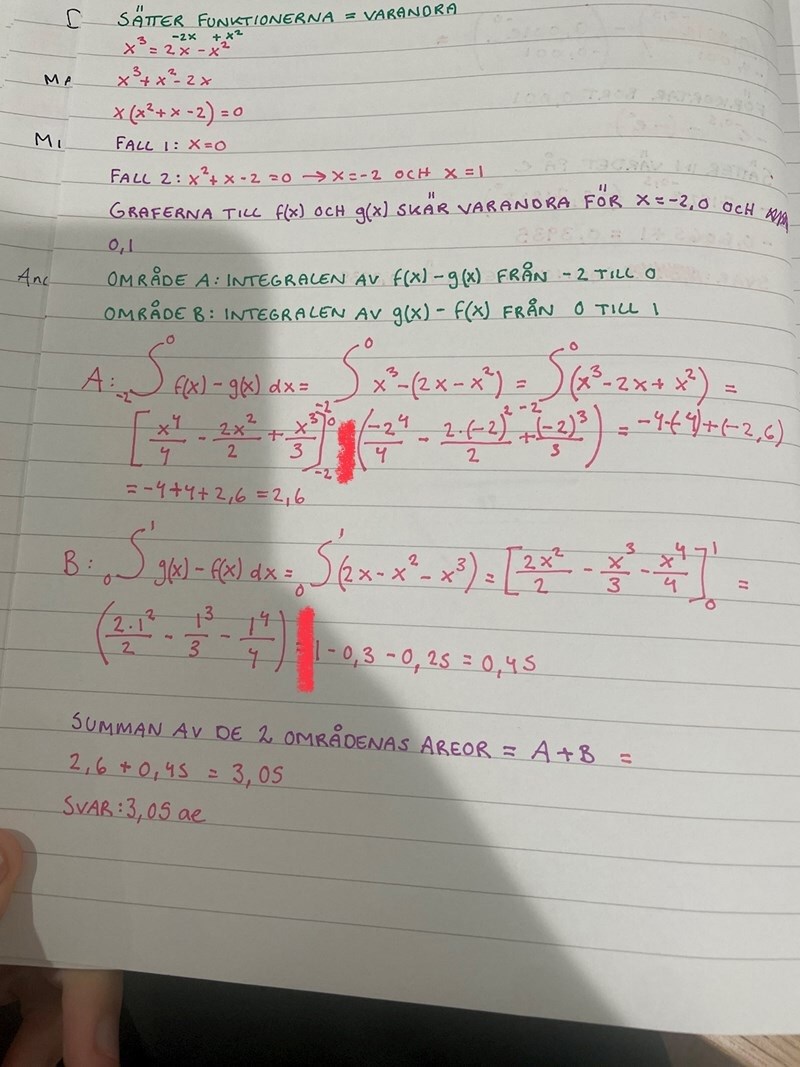 I SÄTTER FUNKTIONERNA = VARANDRA
-2x +x²
x³ = 2x - x²
x³+x²-2x
x(x²+x-2)=0
M1 FALL 1: x=0
FALL 2: x²+x-2=0 → x=-2 OCH x=1
GRAFERNA TILL f(x) OCH g(x) SKÄR VARANDRA FÖR x=-2,0 OCH
0,1
OMRÅDE A: INTEGRALEN AV f(x)-g(x) FRÅN -2 TILL 0
OMRÅDE B: INTEGRALEN AV g(x)-f(x) FRÅN 0 TILL 1
A: ₋₂∫⁰ f(x)-g(x) dx = ∫₋₂⁰ x³-(2x-x²) = ∫₋₂⁰ (x³-2x+x²) =
[x⁴/4 - 2x²/2 + x³/3]₋₂⁰ (-2⁴/4 - 2·(-2)²/2 + (-2)³/3) = -4-(-4)+(-2,6)
= -4+4+2,6 = 2,6
B: ₀∫¹ g(x)-f(x) dx = ₀∫¹ (2x-x²-x³) = [2x²/2 - x³/3 - x⁴/4]₀¹ =
(2·1²/2 - 1³/3 - 1⁴/4) = 1-0,3-0,25 = 0,45
SUMMAN AV DE 2 OMRÅDENAS AREOR = A+B =
2,6+0,45 = 3,05
SVAR: 3,05 ae